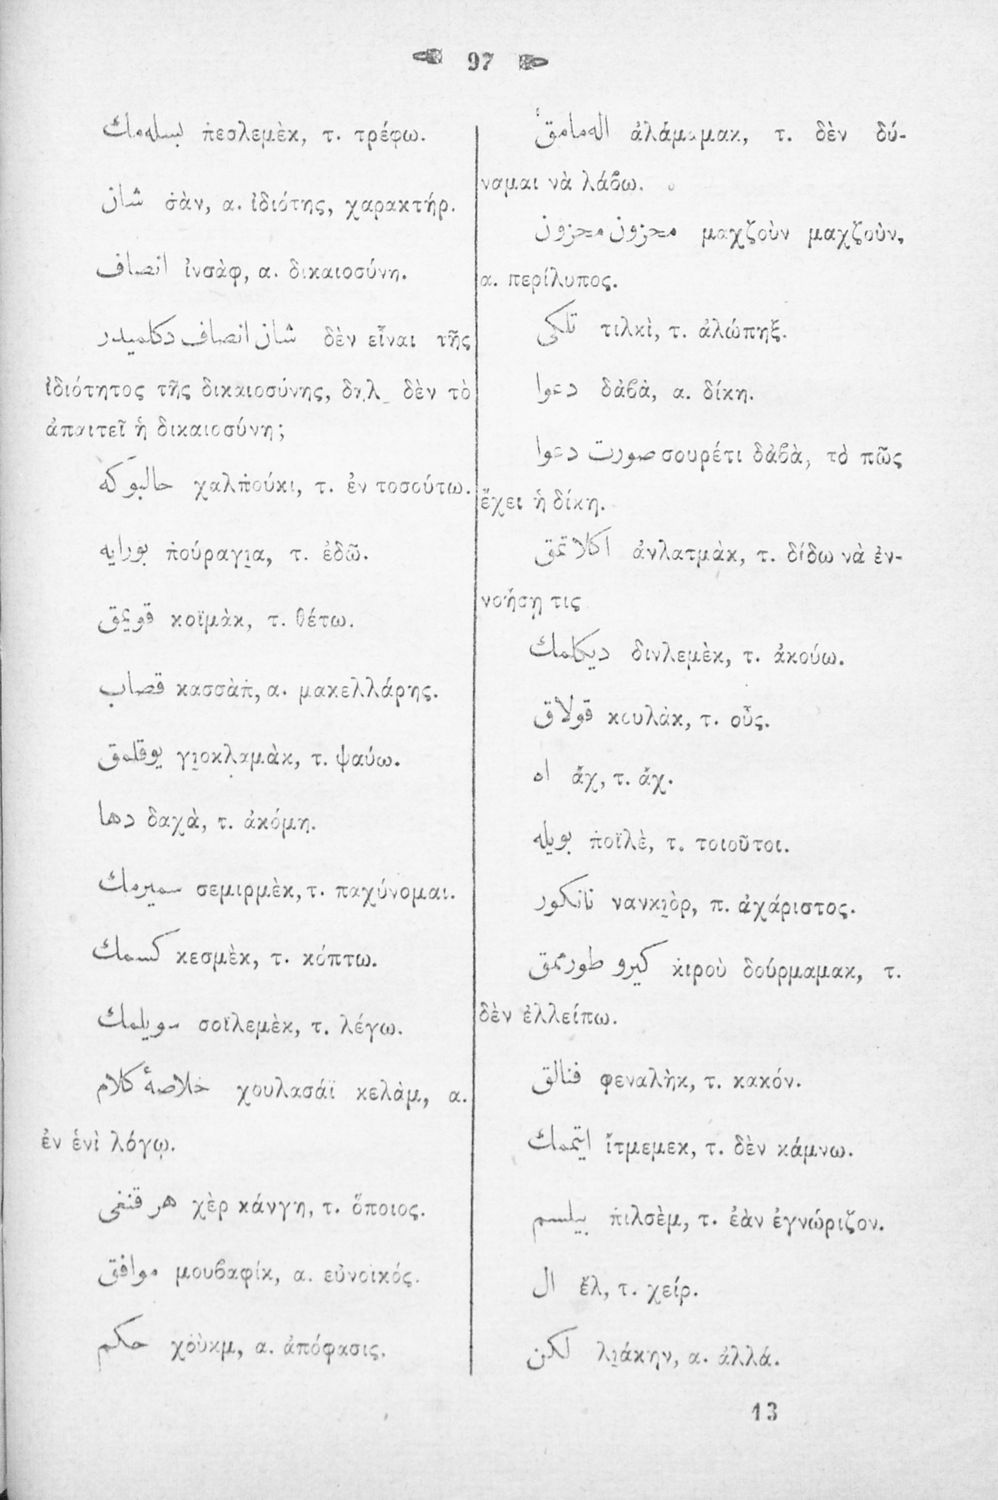 97
بسلەمك π̇εσλεμὲκ, τ. τρέφω.
شان σ̇ὰν, α. ἰδιότης, χαρακτήρ.
انصاف ἰνσὰφ, α. δικαιοσύνη.
شان انصاف دكلميدر δὲν εἶναι τῆς
ἰδιότητος τῆς δικαιοσύνης, δηλ. δὲν τὸ
ἀπαιτεῖ ἡ δικαιοσύνη;
حالبوكه χαλπ̇ούκι, τ. ἐν τοσούτω.
بورايه π̇ούραγι̯α, τ. ἐδῶ.
قويمق κοϊμὰκ, τ. θέτω.
قصاب κασσὰπ̇, α. μακελλάρης.
يوقلمق γι̯οκλαμὰκ, τ. ψαύω.
دها δαχὰ, τ. ἀκόμη.
سميرمك σεμιρμὲκ, τ. παχύνομαι.
كسمك κεσμὲκ, τ. κόπτω.
سويلمك σοϊλεμὲκ, τ. λέγω.
خلاصهٔ كلام χουλασάϊ κελὰμ, α.
ἐν ἑνὶ λόγῳ.
هر قنغى χὲρ κάνγη, τ. ὅποιος.
موافق μουβαφίκ, α. εὐνοϊκός.
حكم χοὺκμ, α. ἀπόφασις.
الەمامق ἀλάμαμακ, τ. δὲν δύ-
ναμαι νὰ λάβω.
محزون محزون μαχζοὺν μαχζοὺν,
α. περίλυπος.
تلكى τιλκὶ, τ. ἀλώπηξ.
دعوا δὰβὰ, α. δίκη.
صورت دعوا σουρέτι δὰβὰ, τὸ πῶς
ἔχει ἡ δίκη.
اكلاتمق ἀνλατμὰκ, τ. δίδω νὰ ἐν-
νοήσῃ τις
ديكلمك δινλεμὲκ, τ. ἀκούω.
قولاق κουλὰκ, τ. οὖς.
اه ἄχ, τ. ἄχ.
بويله π̇οϊλὲ, τ. τοιοῦτοι.
نانكور νανκι̯ὸρ, π. ἀχάριστος.
كيرو طورممق κ̇ιροὺ δούρμαμακ, τ.
δὲν ἐλλείπω.
فنالق φεναλὴκ, τ. κακόν.
ايتممك ἴτμεμεκ, τ. δὲν κάμνω.
بيلسم π̇ιλσὲμ, τ. ἐὰν ἐγνώριζον.
ال ἒλ, τ. χείρ.
لكن λι̯άκην, α. ἀλλά.
13